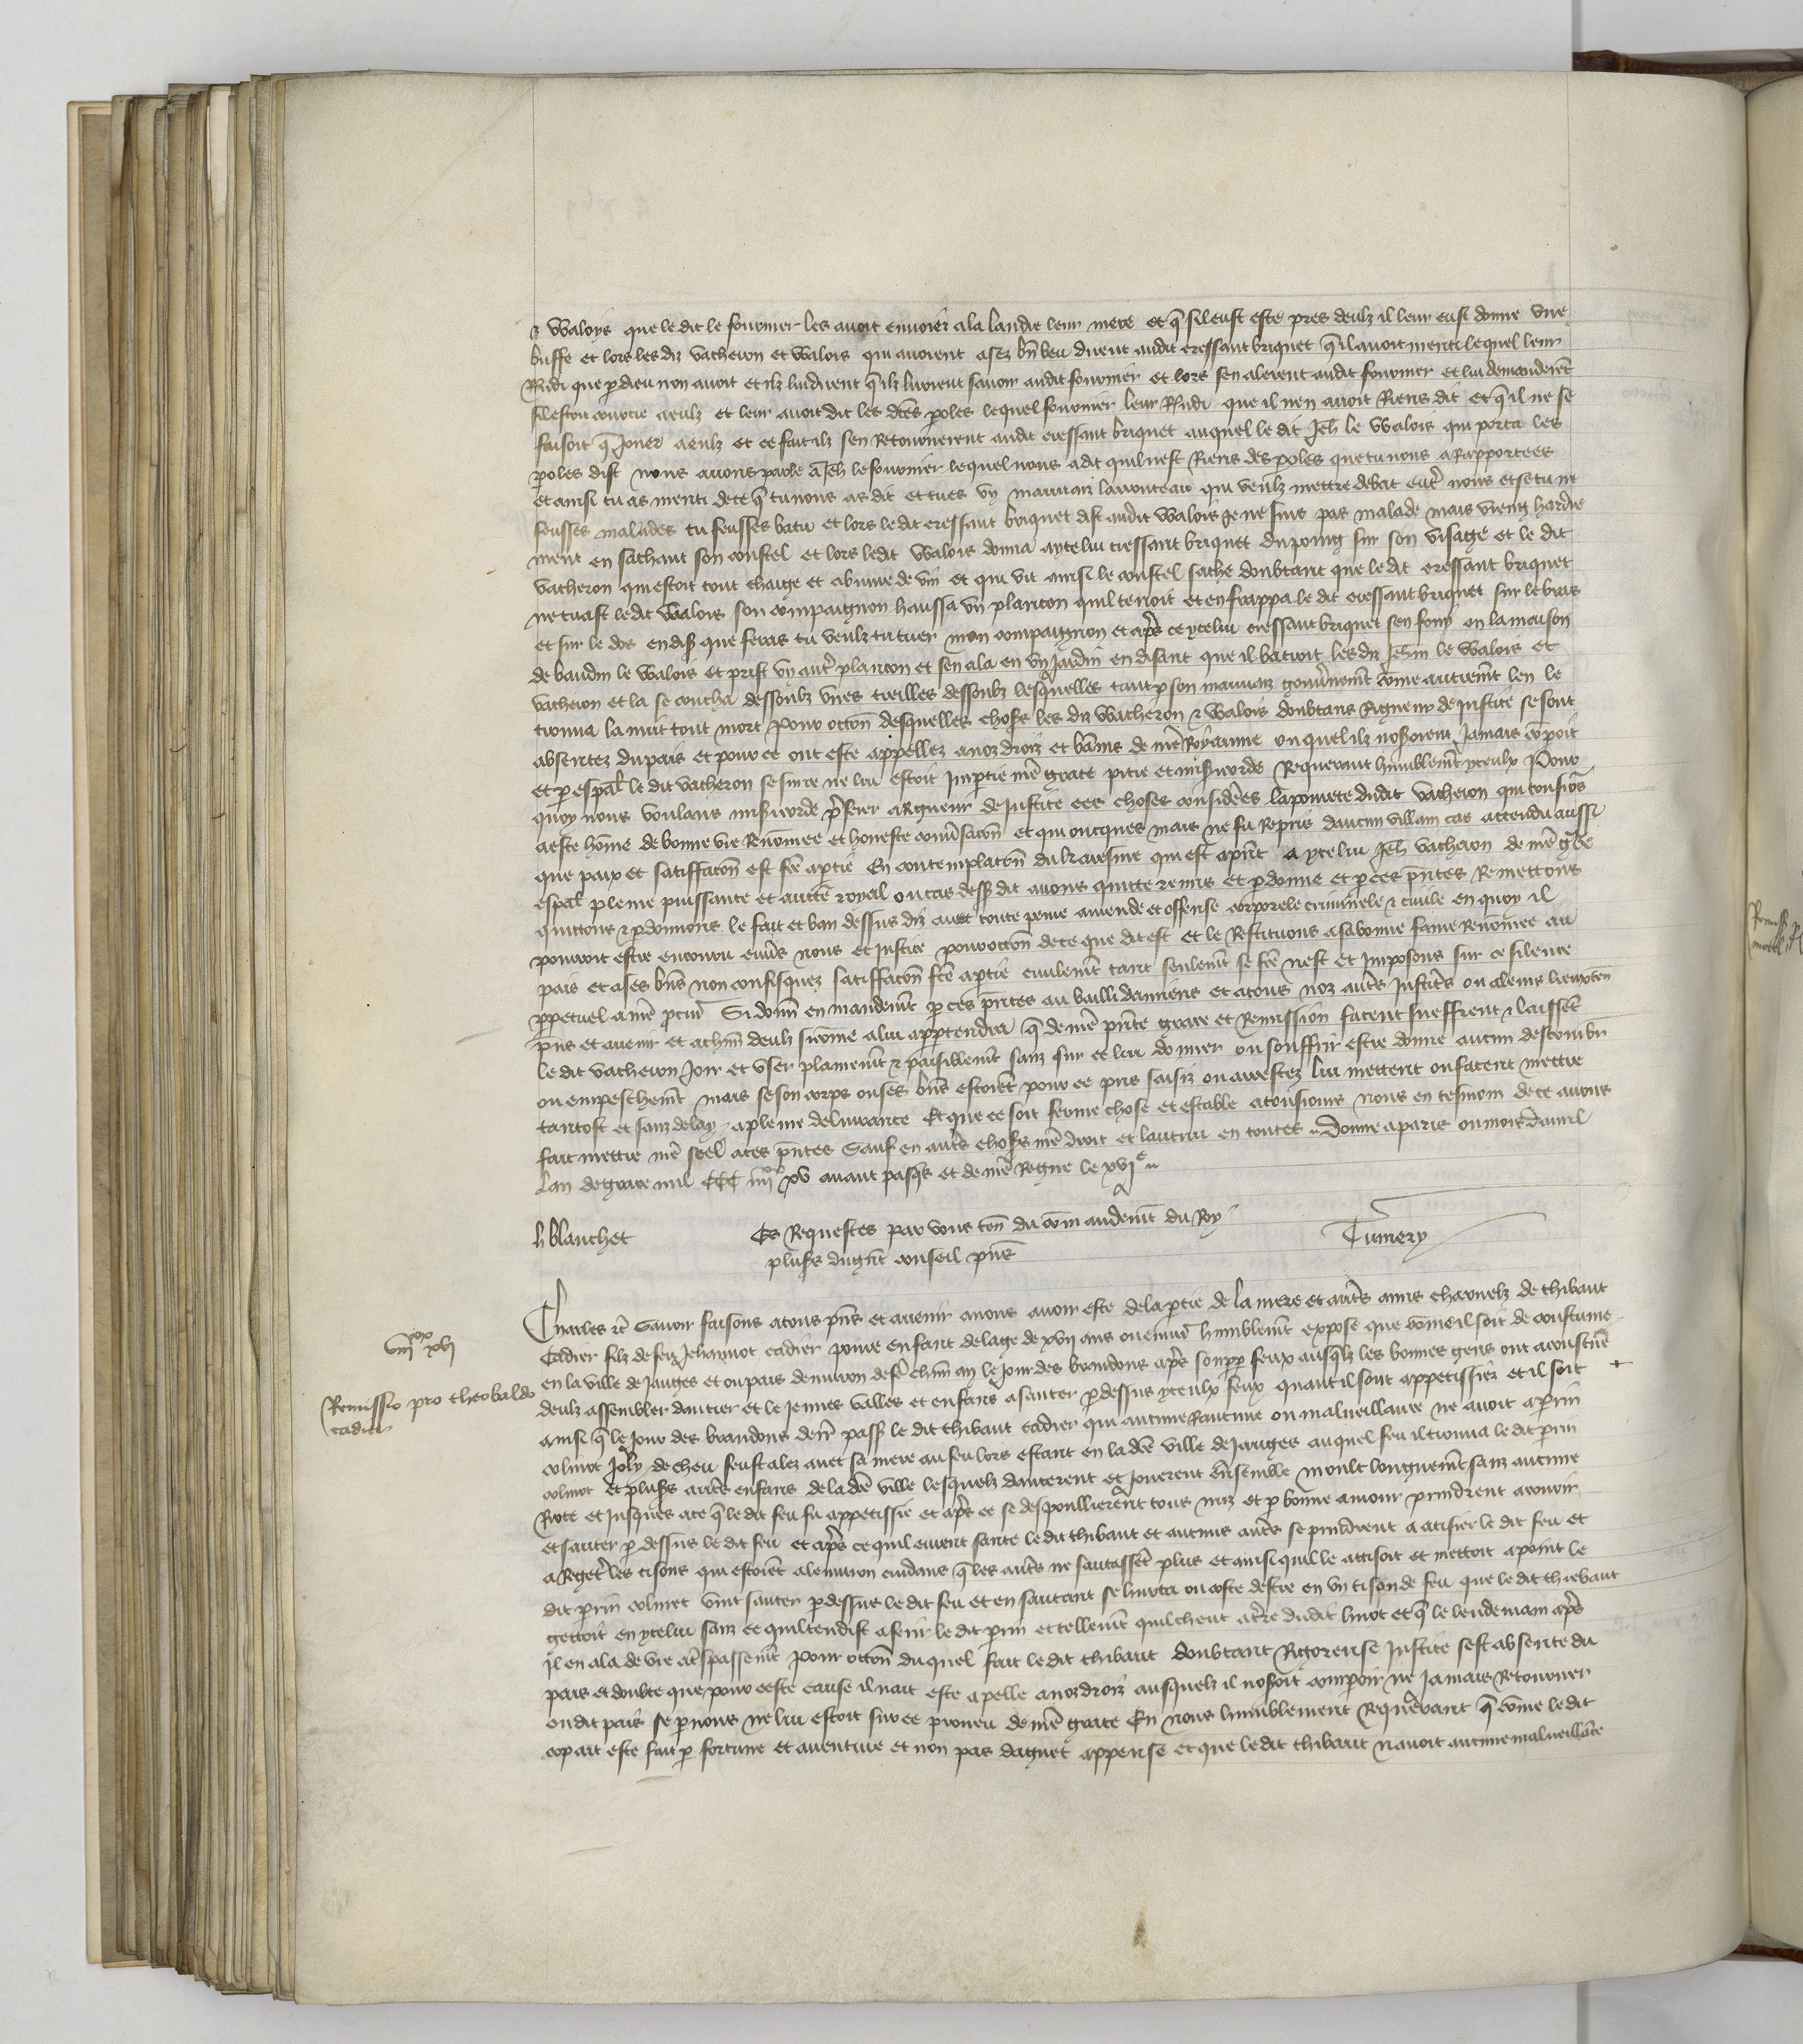 & Waloys que le dit le fournier les avoit envoiez a la landie leur mere et q̄ sil eust este pres deulz il leur eust donne une
buffe et lors les diz vacheron et Walois qui avoient assez bn̄ beu dirent audit cressant briquet q̄ il avoit menti lequel leur
Rn̄di que p dieu non avoit et ilz lui dirent q̄ ilz liroient savoir audit fournier et lors sen alerent audit fournier et lui demanderēt
sil estoit courcie a eulz et leur avoit dit les dc̄es poles lequel fournier leur Rn̄di que il nen avoit Riens dit et q̄ il ne se
faisoit q̄ Jouer a eulz et ce fait ilz sen Retournerent audit cressant briquet auquel le dit Jeh̄ le Walois qui porta les
poles dist nous avons parle a Jeh̄ le fournier lequel nous a dit quil nest Riens des poles que tu nous a Rapportees
et ainsi tu as menti de ce q̄ tu nous as dit et tu es un mauvaiz qui veulz mettre debat ent̄ nous et se tu ne
feusses malades tu feusses batu et lors le dit cressant briquet dist audit Walois Je ne suis pas malade mais vieng hardie
ment en sachant son coustel et lors ledit Walois donna a ycelui cressant briquet du poing sur son visage et le dit
vacheron qui estoit tout chargie et abuvre de vin et qui vit ainsi le coustel sache doubtant que le dit cressant briquet
ne tuast le dit Walois son compaignon haussa un plancon quil tenoit et en frappa le dit cressant briquet sur le bras
et sur le dos en dis̄ que feras tu veulz tu tuer mon compaignon et ap̄s ce ycelui cressant briquet sen fouy en la maison
de baudin le Walois et prist un aut̄ plancon et sen ala en un Jardin en disant que il batroit les diz Jehan le Walois et
vacheron et la se coucha dessoubz unes treilles dessoubz lesquelles tant p son mauvaiz gouv̄nemt̄ cōme autremt̄ len le
trouva la nuit tout mort Pour occōn desquelles choses les diz Wacheron & Walois doubtans Rigueur de Justice se sont
absentez du pais et pour ce ont este appellez a noz droiz et bāniz de nr̄e Royaume ou quel ilz noseroient Jamais cōpoir
et p esp̄al le dit vacheron se sur ce ne lui estoit Imp̄tie nr̄e grace pitie et misicorde Requerant humblemt̄ yceulx Pour
quoy nous voulans misicorde p̄ferer a Rigueur de Justice ces choses considerees la povrete dudit vacheron qui tousjōs
a este hōme de bonne vie Renōmee et honeste conv̄sacōn et qui oncques mais ne fu Repris daucun villain cas attendu aussi
que paix et satiffacōn est fc̄e a ptie En contemplacōn du karesme qui est a pn̄t a ycelui Jeh̄ vacheron de nr̄e gr̄ce
esp̄al pleine puissance et auctē royal ou cas dess̄ dit avons quitte remis et pdonne et p ces pn̄tes Remettons
quittons & pdonnons le fait et ban dessus diz avec toute peine amende et offense corporele criminele & civile en quoy il
pourroit estre encouru env̄s nous et Justice pour occōn de ce que dit est et le Restituons a sa bonne fame Renōmee au
pais et a ses bn̄s non confisquez satiffacōn fc̄e a ptie civilemt̄ tant seulemt̄ se fc̄e nest et Imposons sur ce silence
ppetuel a nr̄e pcur̄ Si donn̄ en mandemt̄ p ces pn̄tes au bailli damiens et a tous noz aut̄s Justic̄s ou a leurs lieuxten̄
pn̄s et avenir et a chūn deulz sicōme a lui appartendra q̄ de nr̄e pn̄te grace et Remission facent sueffrent & laissēt
le dit vacheron Joir et user plainemt̄ & paisiblemt̄ sanz sur ce lui donner ou souffrir estre donne aucun destourb̄
ou empeschemt̄ mais se son corps ou ses bn̄s estoiēt pour ce pris saisiz ou arrestez lui mettent ou facent mettre
tantost et sanz delay a pleine delivrance Et que ce soit ferme chose et estable a tousjours nous en tesmoin de ce avons
fait mettre nr̄e seel a ces pn̄tes Sauf en aut̄s choses nr̄e droit et lautrui en toutes Donne a paris ou mois davril
Lan de grace mil CCC iiii^xx xv avant pasq̄s et de nr̄e Regne le xvi^e
h blanchet
Es Requestes par vous ten̄ du com̄andemt̄ du Roy
plus̄s du gn̄t conseil pn̄s
Tumery
viii^xx xvi
Remissio pro theobaldo
cadier
Charles &c̄ Savoir faisons a tous pn̄s et avenir a nous avoir este de la ptie de la mere et aut̄s amis charnelz de thibaut
Cadier filz de feu Jehannot cadier povre enfant de laage de xvii ans ou environ humblemt̄ expose que cōme il soit de coustume
en la ville de Jauges et ou pais denviron de fē chūn an le Jour des brandons ap̄s soupp̄ feux ausq̄lz les bonnes gens ont acoustumē
deulz assembler dancier et le Jeunes valles et enfans a sauter p dessus yceulx feux quant il sont appetissiez et il soit
ainsi q̄ le Jour des brandons derr̄ pass̄ le dit thibaut cadier qui aucune Rancune ou malveillance ne avoit a perin
colinot Joly de cheu feust alez avec sa mere au feu lors estant en la dc̄e ville de Jauges auquel feu il trouva le dit perin
colinot et plus̄s aut̄s enfans de la dc̄e ville lesquelz dancerent et Jouerent ensemble moult longuemt̄ sanz aucune
Riote et Jusques a ce q̄ le dit feu fu appetissie et ap̄s ce se despoullierent tous nuz et p bonne amour prindrent a courir
et sauter p dessus le dit feu et ap̄s ce quil eurent saute le dit thibaut et aucuns aut̄s se prindrent a atisier le dit feu et
a Reget̄ les tisons qui estoiēt a lenviron cuidans q̄ les aut̄s ne sautassēt plus et ainsi quil le attisoit et mettoit a point le
dit perin colinet vint sauter p dessus le dit feu et en sautant se hurta ou coste destre en un tison de feu que le dit thiebaut
gettoit en ycelui sanz ce quil tendist a ferir le dit perin et tellemt̄ quil cheut a tr̄re dudit hurt et q̄ le lendemain ap̄s
Il en ala de vie a tr̄spassemt̄ Pour occōn duquel fait le dit thibaut doubtant Rigoreuse Justice sest absente du
pais et doubte que pour ceste cause il nait este apelle a noz droiz ausquelz il nosoit compoir ne Jamais Retourner
ou dit pais se p nous ne lui estoit sur ce pourveu de nr̄e grace En nous humblement Requerant q̄ cōme le dit
cop ait este fait p fortune et aventure et non pas daguet appense et que le dit thibaut navoit aucune malveillāce